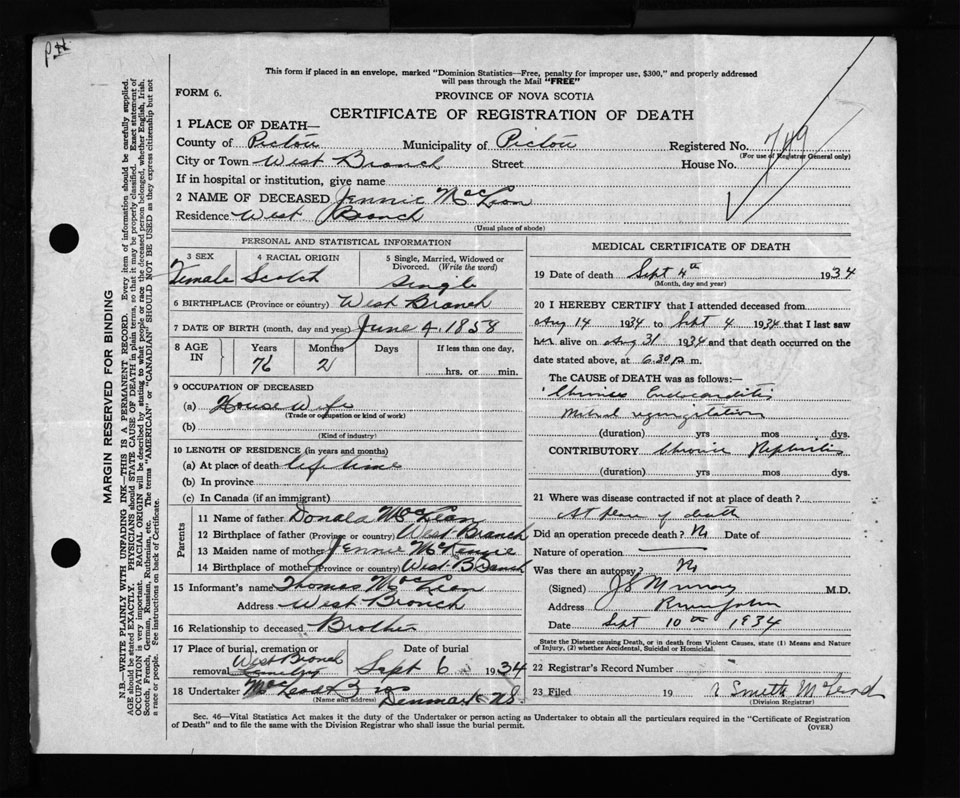 P.H.
This form if placed in an envelope, marked "Dominion Statistics—Free, penalty for improper use, $300," and properly addressed
will pass through the Mail "FREE"
FORM 6.
PROVINCE OF NOVA SCOTIA
CERTIFICATE OF REGISTRATION OF DEATH
1 PLACE OF DEATH—
County of Pictou Municipality of Pictou Registered No. 749
(For use of Registrar General only)
City or Town West Branch Street House No.
If in hospital or institution, give name
2 NAME OF DECEASED Jennie McLean
Residence West Branch
(Usual place of abode)
PERSONAL AND STATISTICAL INFORMATION
3 SEX 4 RACIAL ORIGIN 5 Single, Married, Widowed or
Divorced. (Write the word)
Female Scotch Single
6 BIRTHPLACE (Province or country) West Branch
7 DATE OF BIRTH (month, day and year) June 4. 1858
8 AGE IN Years Months Days If less than one day,
76 2 hrs. or min.
9 OCCUPATION OF DECEASED
(a) House Wife
(Trade or occupation or kind of work)
(b)
(Kind of industry)
10 LENGTH OF RESIDENCE (in years and months)
(a) At place of death life time
(b) In province
(c) In Canada (if an immigrant)
Parents
11 Name of father Donald McLean
12 Birthplace of father (Province or country) West Branch
13 Maiden name of mother Jennie McKenzie
14 Birthplace of mother (Province or country) West Branch
15 Informant's name Thomas McLean
Address West Branch
16 Relationship to deceased Brother
17 Place of burial, cremation or removal Date of burial
West Branch Sept 6 1934
18 Undertaker McLeod Bros
(Name and address) Denmark N.S.
MEDICAL CERTIFICATE OF DEATH
19 Date of death Sept 4th 1934
(Month, day and year)
20 I HEREBY CERTIFY that I attended deceased from
Aug 14 1934 to Sept 4 1934 that I last saw
her alive on Aug 31 1934 and that death occurred on the
date stated above, at 6.30 p m.
The CAUSE OF DEATH was as follows:—
Chronic Endocarditis
Mitral regurgitation
(duration) yrs mos dys.
CONTRIBUTORY Chronic Nephritis
(duration) yrs mos dys.
21 Where was disease contracted if not at place of death?
At place of death
Did an operation precede death? No Date of
Nature of operation
Was there an autopsy? No
(Signed) Murray M.D.
Address River John
Date Sept 10th 1934
State the Disease causing Death, or in death from Violent Causes, state (1) Means and Nature
of Injury, (2) whether Accidental, Suicidal or Homicidal.
22 Registrar's Record Number
23 Filed 19 Smith McLeod
(Division Registrar)
Sec. 46—Vital Statistics Act makes it the duty of the Undertaker or person acting as Undertaker to obtain all the particulars required in the "Certificate of Registration
of Death" and to file the same with the Division Registrar who shall issue the burial permit.
(OVER)
MARGIN RESERVED FOR BINDING
N.B.—WRITE PLAINLY WITH UNFADING INK—THIS IS A PERMANENT RECORD. Every item of information should be carefully supplied.
AGE should be stated EXACTLY. PHYSICIANS should STATE CAUSE OF DEATH in plain terms, so that it may be properly classified. Exact statement of
OCCUPATION is very important. RACIAL ORIGIN will be described by stating to what people or race the deceased person belonged, whether English, Irish,
Scotch, French, German, Russian, Ruthenian, etc. The terms "AMERICAN" or "CANADIAN" SHOULD NOT BE USED as they express citizenship but not
a race or people. See instructions on back of Certificate.